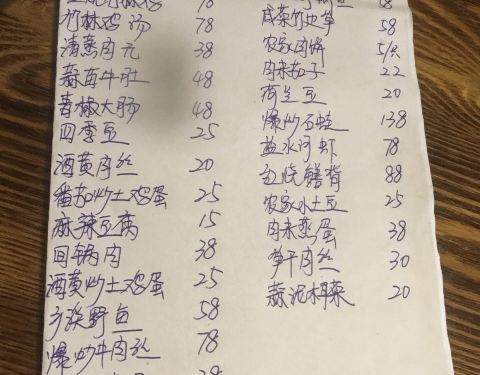 竹林鸡汤 78
清蒸肉元 38
蒜苗牛肚 48
青椒大肠 48
四季豆 25
酒黄肉丝 20
番茄炒土鸡蛋 25
麻辣豆腐 15
回锅肉 38
酒黄炒土鸡蛋 25
野鱼 58
爆炒牛肉丝 78
咸菜 58
农家肉饼 5/只
肉末茄子 22
荷兰豆 20
爆炒石蛙 138
盐水河虾 78
红烧鳝背 88
农家小土豆 25
肉末蒸蛋 38
笋干肉丝 30
蒜泥木耳菜 20